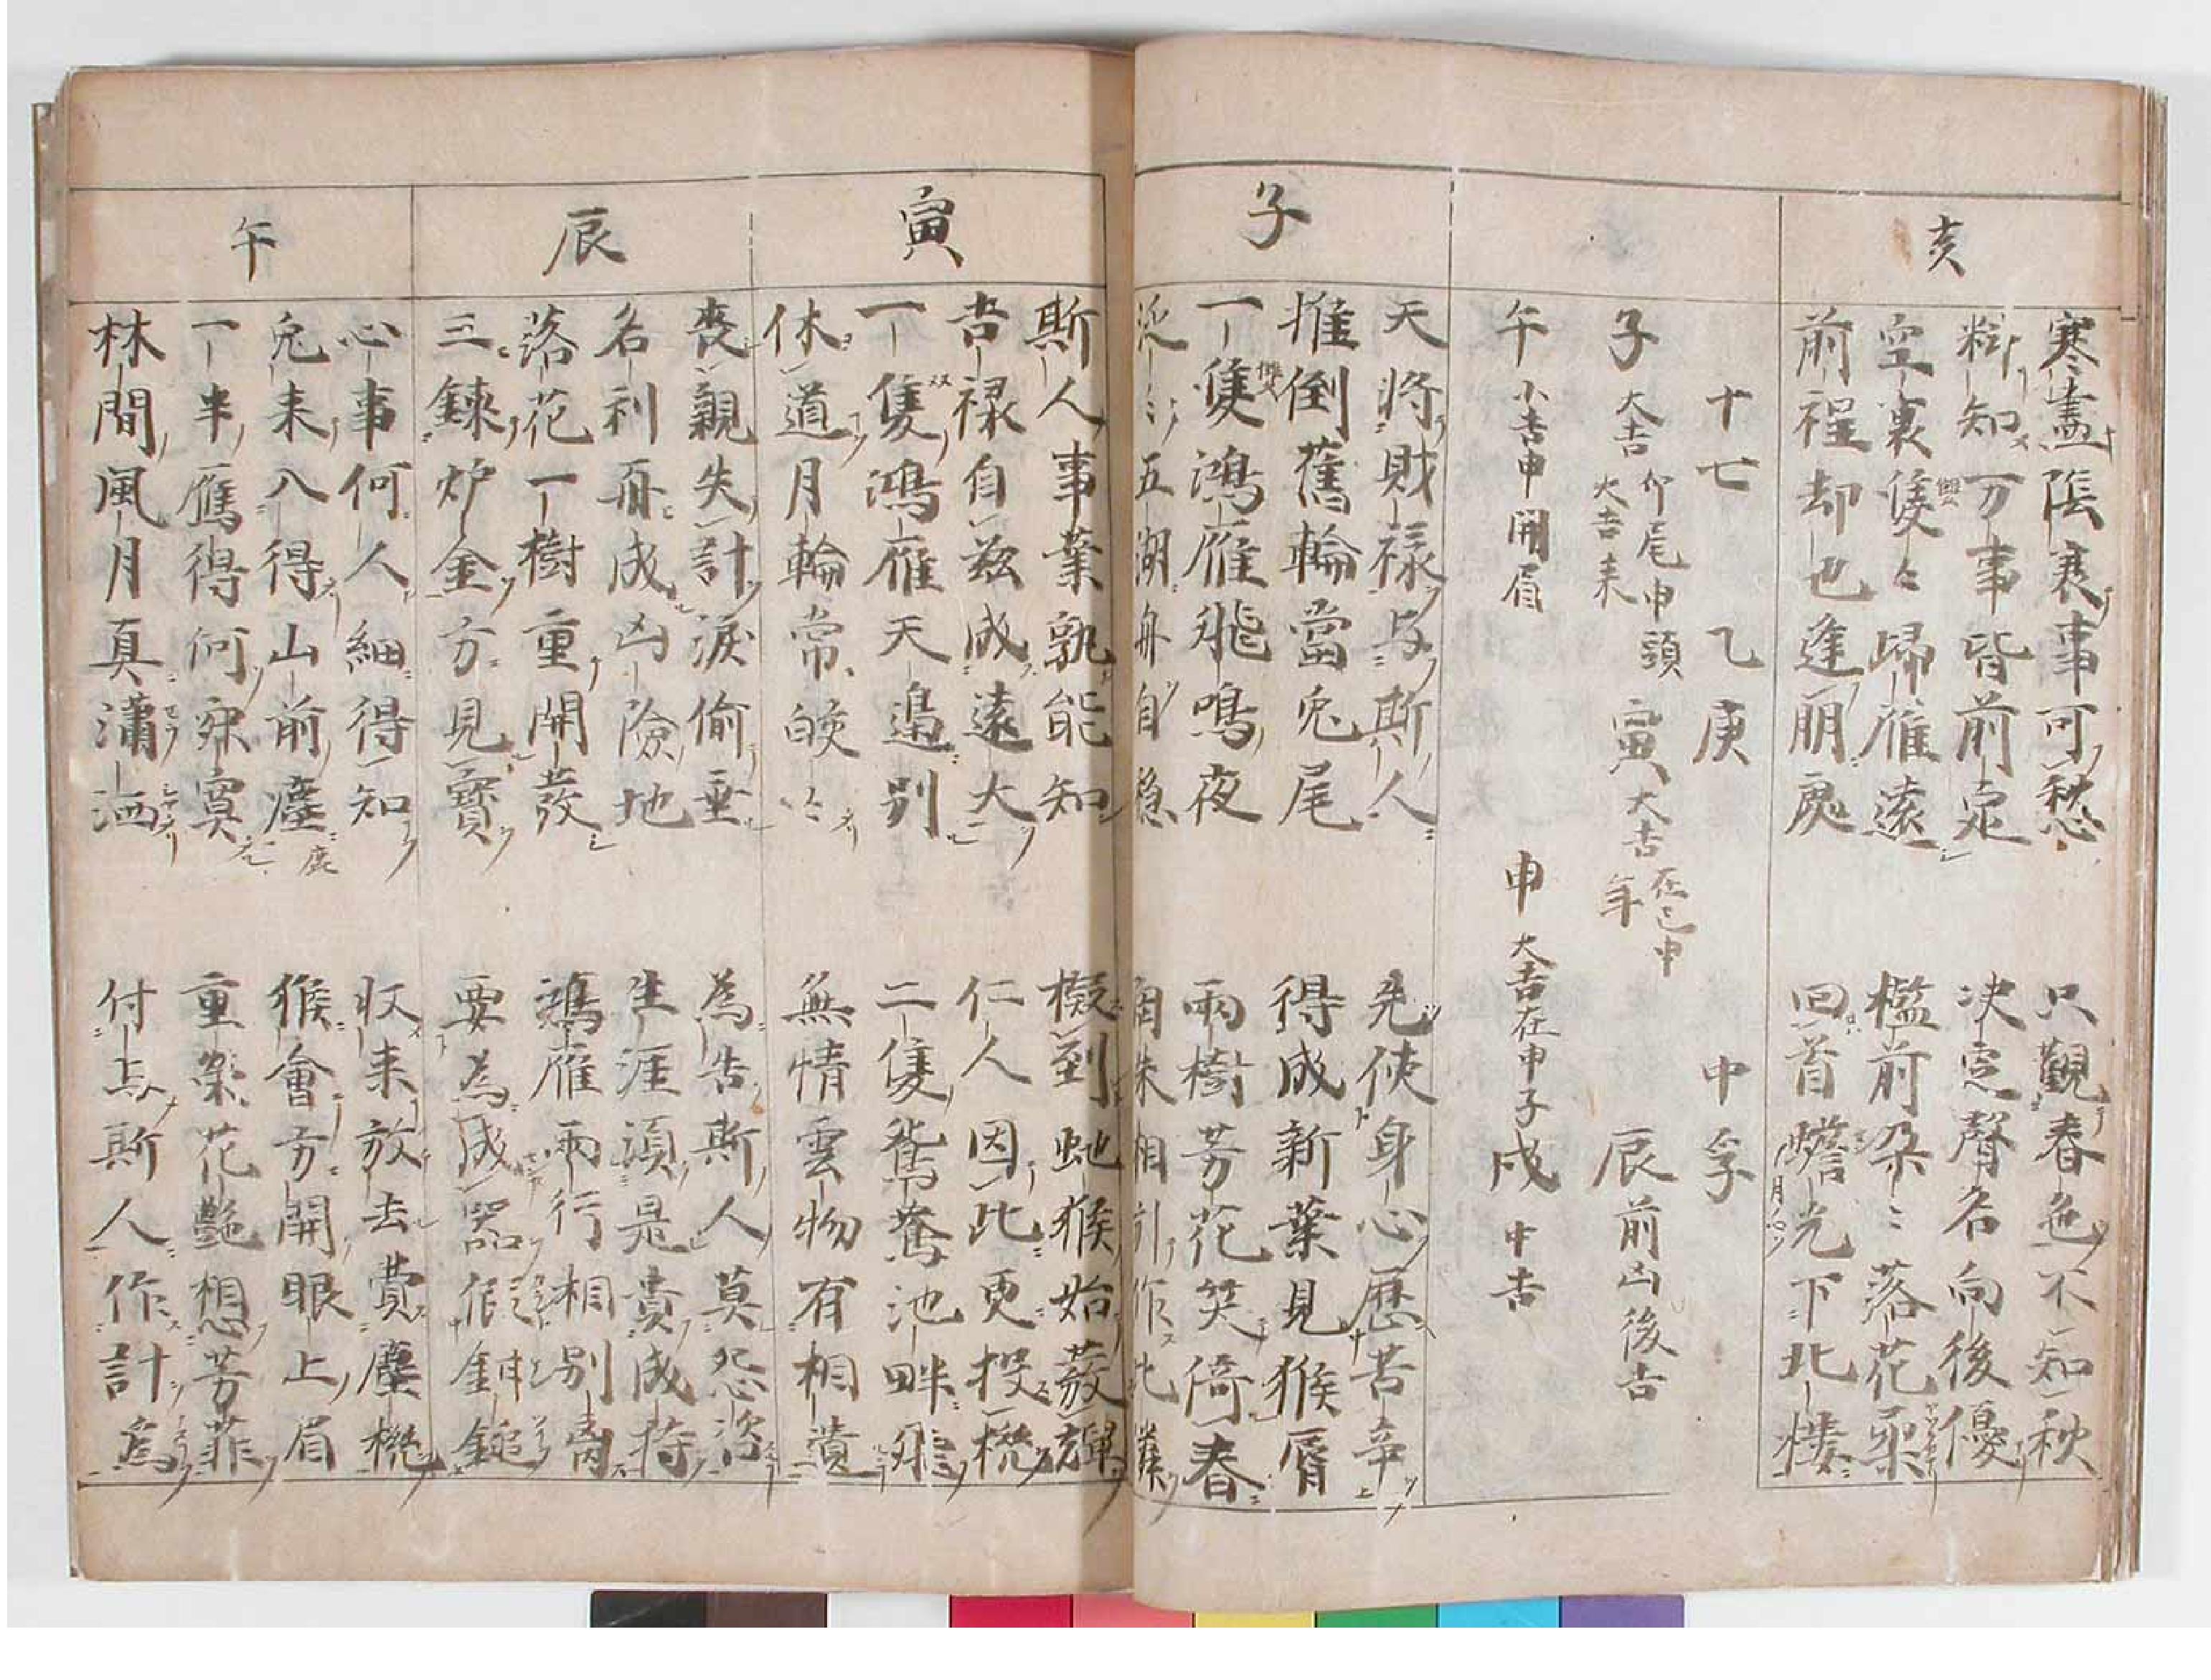 亥
寒盖蔭寒事可愁　只觀春色不知秋
料知万事皆前定　决定聲名向後優
空裏隻々帰雁遠　檻前朶〻落花
前程却也逢朋　回首蟾光下北楼
十七　乙庚　中孚
子 大吉 卯尾申頭 大吉未　寅 大吉 在己申年　辰 前凶後吉
午 小吉申開眉　申 大吉在申子　戌 中吉
子
天将財禄与斯人　先使身心歴苦辛
推倒舊輪當兎尾　得成新葉見猴脣
一隻鴻雁飛鳴夜　兩樹芳花笑倚春
泛〻五湖舟自穏　相引作
寅
斯人事業孰能知　擬到虵猴始發輝
吉禄自茲成遠大　仁人因此更投機
一隻鴻雁天邉別　二隻鴛鴦池畔飛
休道月輪常皎〻　無情雲物有相違
辰
喪親失計淚偷垂　為告斯人莫怨
名利再成凶險地　生涯須是貴成持
落花一樹重開發　鴻雁兩行相別
三鍊炉金方見寳　要為成器假鉗鎚
午
心事何人細得知　收来放去費塵機
兎未八得山前塵　猴會方開眼上眉
一半鴈得何寂寞　重栄花艶想芳菲
林間風月真瀟洒　付与斯人作計為